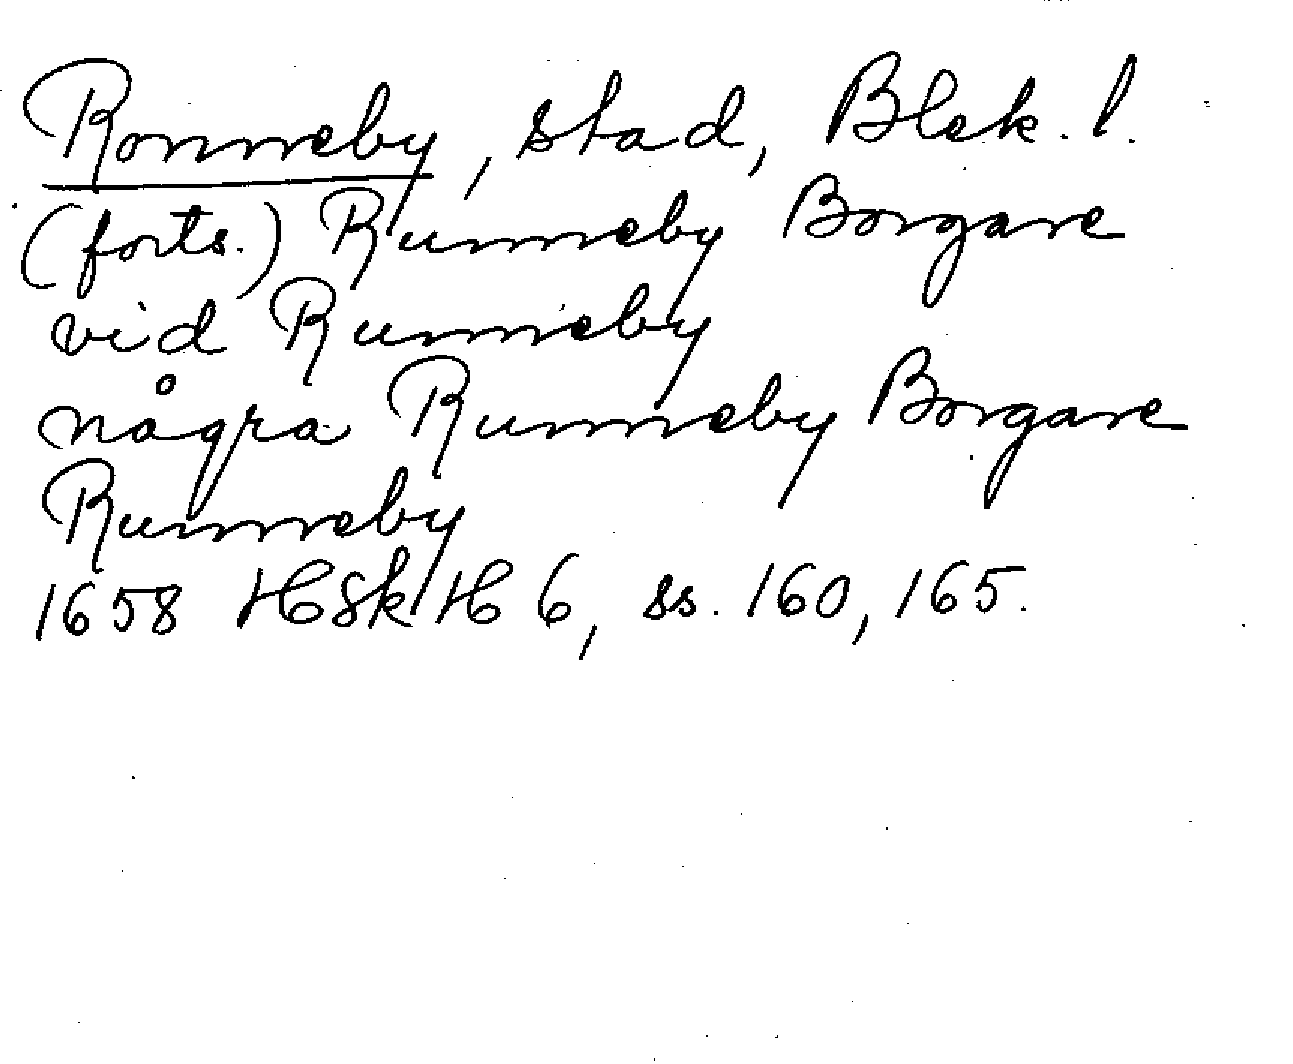 Ronneby, stad, Blek. l.
(forts.) Runneby Borgare
vid Runneby
några Runneby Borgare
Runneby
1658 HSkH 6, ss. 160, 165.